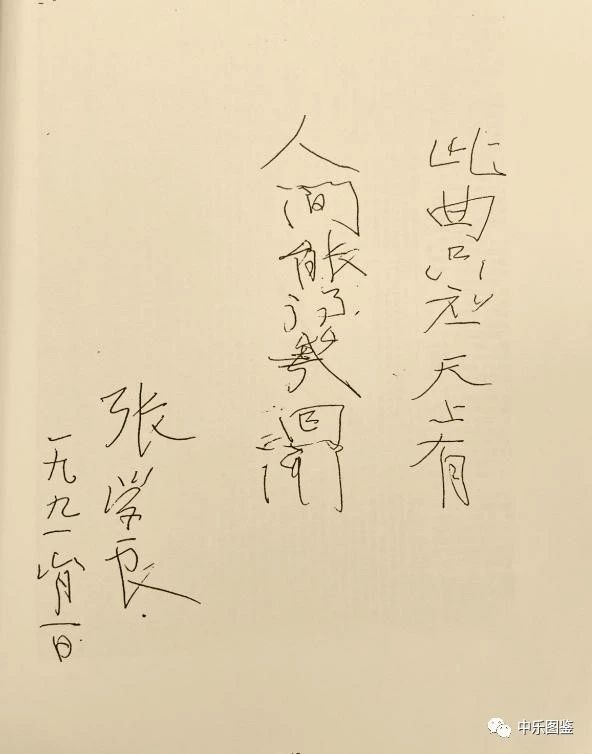 此曲只应天上有
人间能得幾回闻
张学良
一九九一 月一日
中乐图鉴